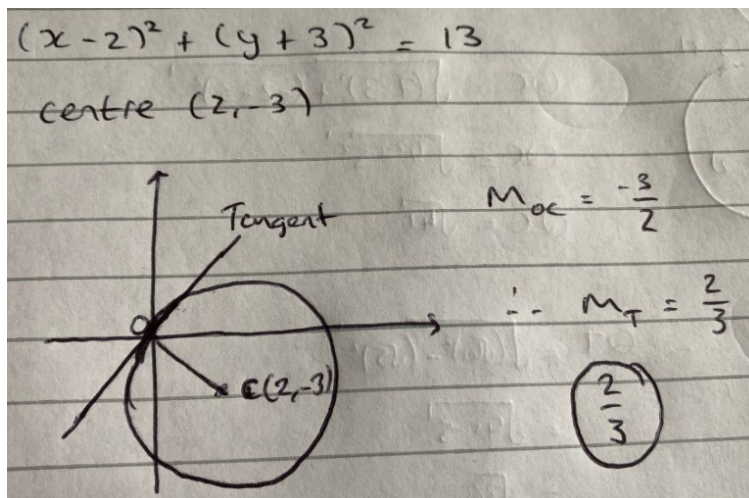 (x-2)² + (y+3)² = 13
centre (2,-3)
Tangent
M_OC = -3/2
O
∴ M_T = 2/3
C(2,-3)
2/3